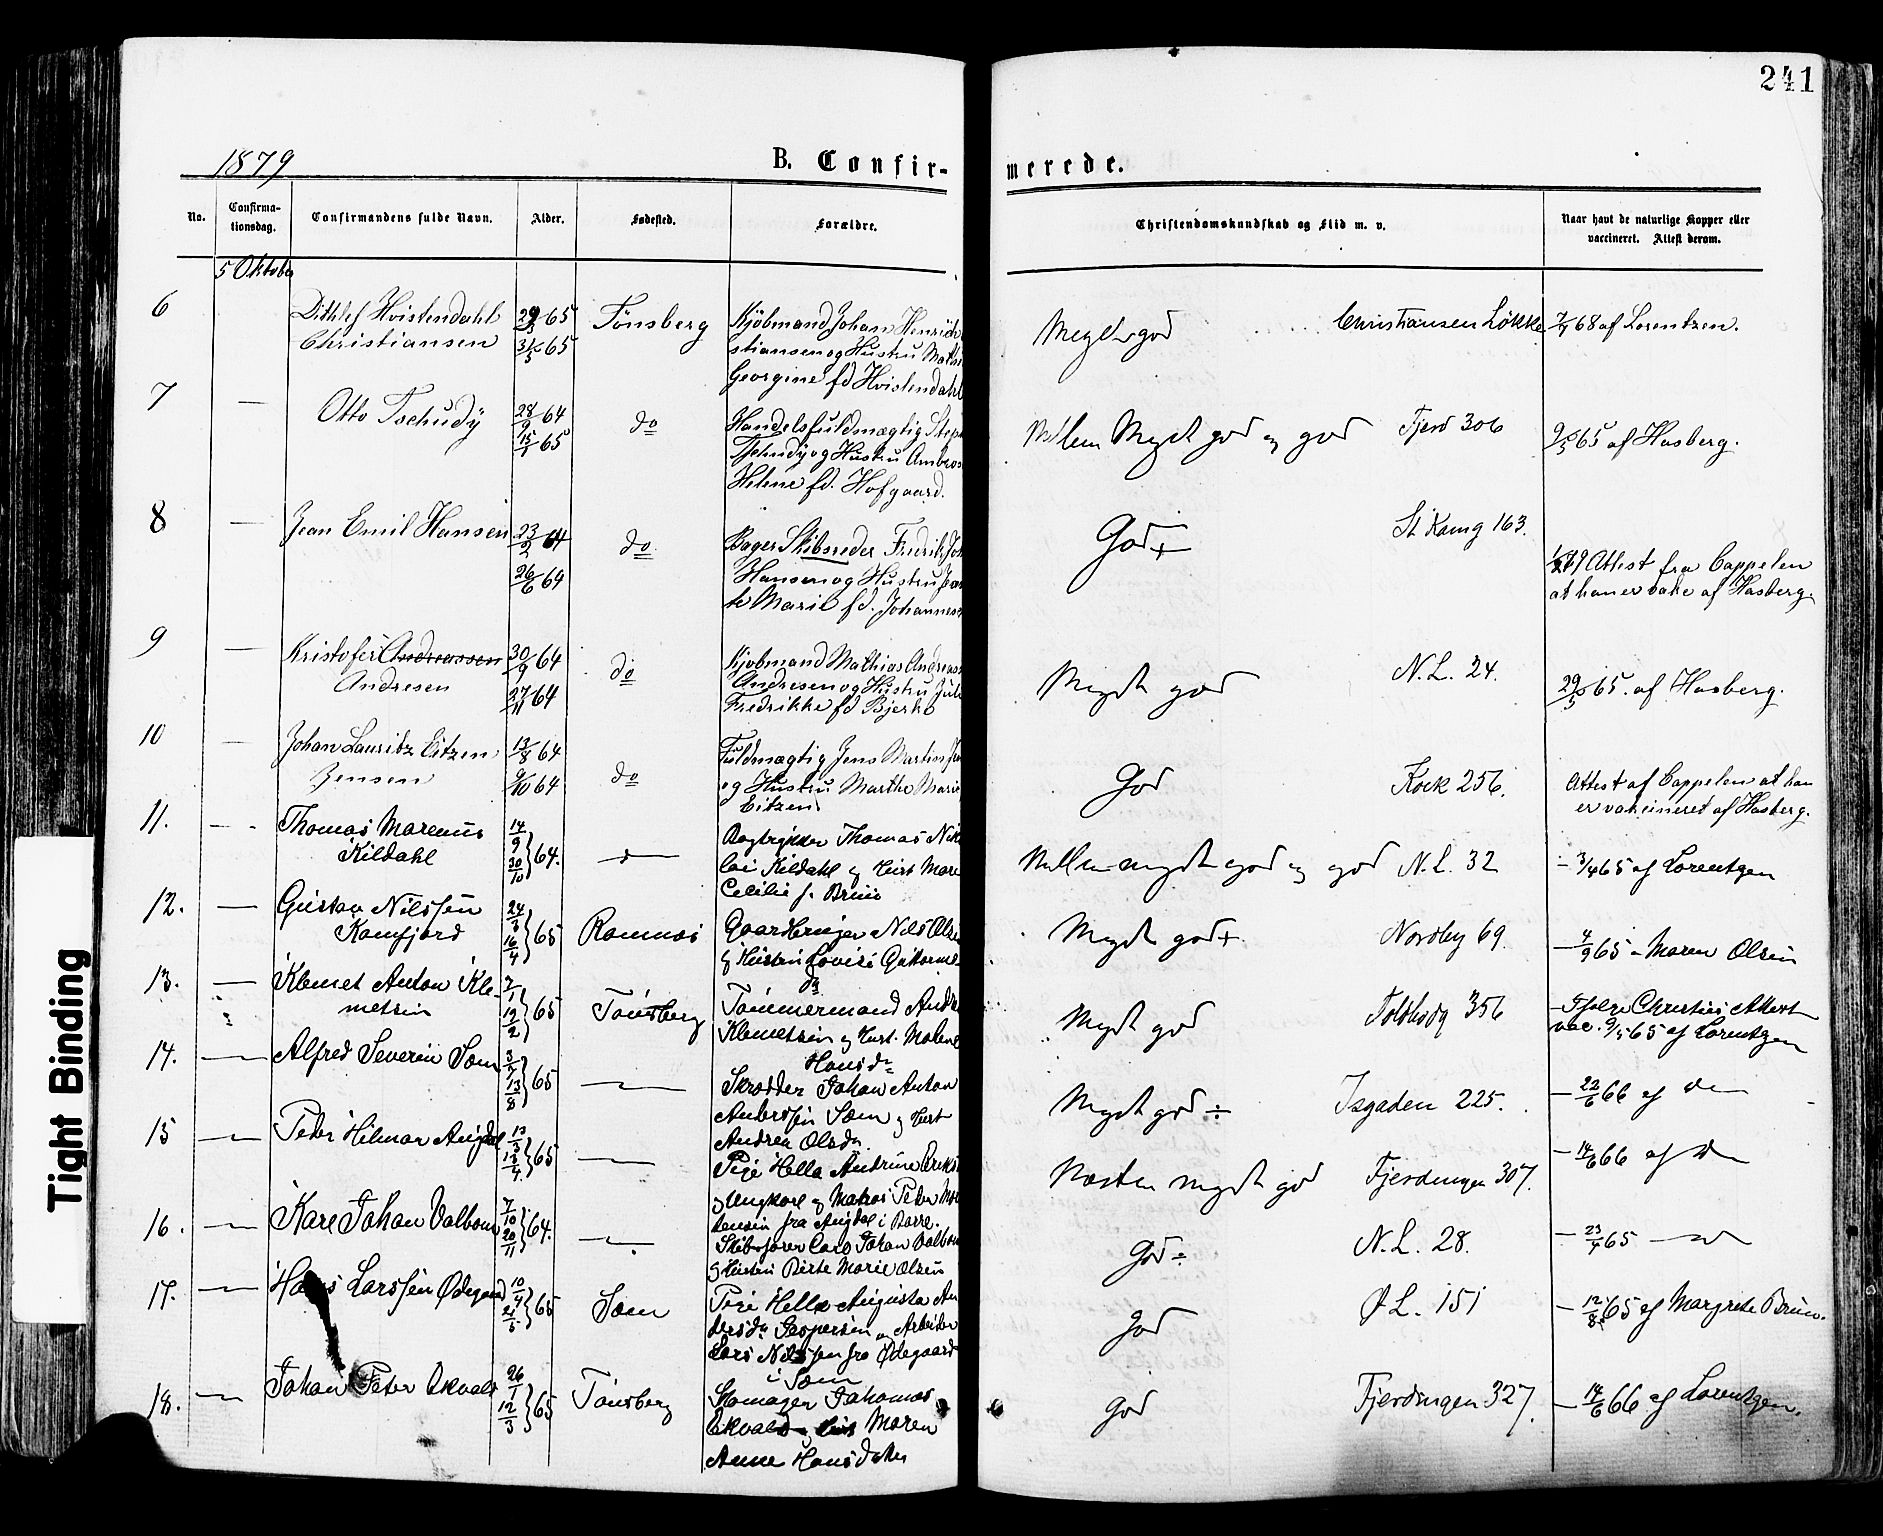 241
1879
B. Confir-
merede.
No.
Confirma-
tionsdag.
Confirmandens fulde Navn.
Alder.
Fødested.
Forældre.
Christendomskundskab og Flid m. v.
Naar havt de naturlige Kopper eller
vaccineret. Attest derom.
5 Oktober
6
Dithlef Hvistendahl
Christiansen
65
31/5 65
Tönsberg
Kjöbmand Johan Henrich
stiansen og Hustru
Georgine fd Hvistendahl
Meget god
Christiansen Løkke
68 af Lorentzen.
7
—
Otto Tschudÿ
28/9 64
15/1 65
do
Handelsfuldmægtig Step
Tschudÿ og Hustru Ambros
Helene fd. Hofgaard.
Mellem Meget god og god
Fjerd 306
9/5 65 af Hasberg.
8
—
Jean Emil Hansen
23/2 64
26/6 64
do
Bager Skibsreder Fredrik Joh
Hansen og Hustru Jean
te Marie fd. Johannes
God +
St Kanng 163.
79 Attest fra Cappelen
at han er vakc af Hasberg.
9
—
Kristofer Andreassen
Andresen
30/9 64
27/11 64
do
Kjöbmand Mathias Andreas
Andresen og Hustru Juli
Fredrikke fd Bjerkö
Meget god
N.L. 24.
29/5 65. af Hasberg.
10
—
Johan Lauritz Eitzen
Jensen
13/8 64
9/10 64
do
Fuldmægtig Jens Martin
og Hustru Marthe Marie
Eitzen
God
Kock 256.
Attest af Cappelen at han
er vakcineret af Hasberg.
11.
—
Thomas Marenius
Kildahl
14/9
30/10 } 64.
—
Bogtrykker Thomas Nik
lai Kildahl og Hust Mare
Cecilie f. Bruu
Mellem meget god og god
N.L. 32
— 3/4 65 af Lorentzen
12.
—
Gustav Nilssen
Kamfjord
24/3
16/4 } 65
Ramnæs
Gaardbruger Nils Olsen
og Hustru Lovise Guttorms-
da
Meget god +
Nordby 69.
— 4/9 65 — Maren Olsen
13.
—
Klemet Anton Kle-
metsen
7/1
12/2 } 65
Tönsberg
Tømmermand Andr
Klemetsen og Hust. Malene
Hansd
Meget god
Toldbodg 356
— Fjolev Christies Attest
vac. 9/5 65 af Lorentzen
14.
—
Alfred Severin Sæm
13/8 } 65
—
Skrædder Johan Anton
Anderssen Sæm og Hust
Andrea Olsda
Meget god ÷
Isgaden 225.
— 22/6 66 af do
15
—
Peter Hilmar Augdal
} 65
—
Pige Hella Andrine Eriks
og Ungkarl og Matros Peter Mor
tensen fra Augdal i Borre.
Næsten meget god
Fjerdingen 307.
— 14/6 66 af do
16.
—
Karl Johan Valbom
7/10
20/11 } 64.
—
Skibsfører Carl Johan Valbom
og Hustru Birte Marie Olsen
God ÷
N.L. 28.
— 23/4 65 — do
17.
—
Hans Larssen Ødegaard
10/4
} 65
Sæm
Pige Hella Augusta An
dersda Jespersen og Arbeider
Lars Nilssen fra Ødegaard
i Sæm
God
Ø L. 151
— 12/8 65 af Margrete Bruu.
18.
—
Johan Peter Ekvald
26/1
12/3 } 65
Tönsberg
Skomager Johannes
Ekvald og Hust Maren
Anne Hansdatter
God
Fjerdingen 327.
— 14/6 66 af Lorentzen.
Tight Binding